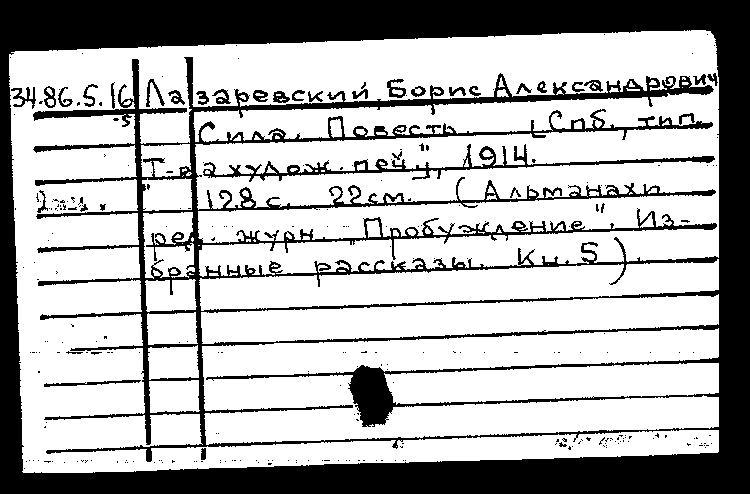 34.86.5.16 Лазаревский, Борис Александрович
-5
Сила. Повесть. [Спб., тип.
"Т-ва худож. печ."], 1914.
128 с. 22 см. (Альманахи
ред. журн. "Пробуждение". Из-
бранные рассказы. Кн. 5).